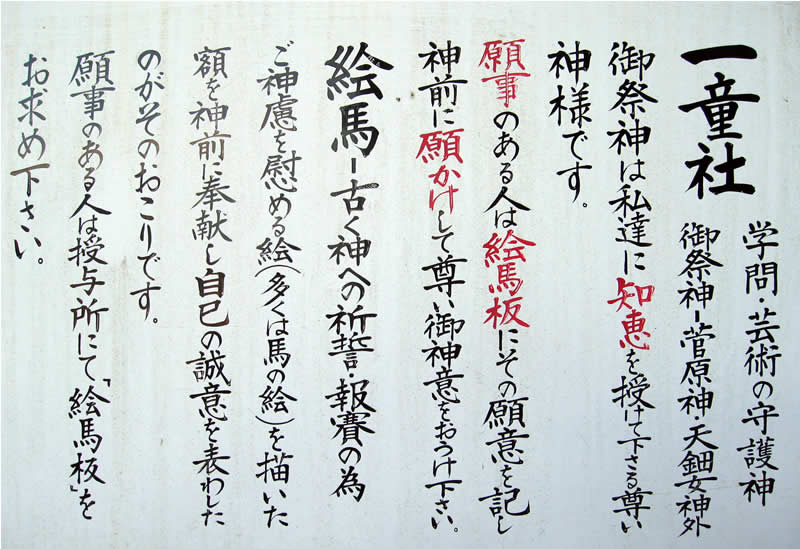 学問・芸術の守護神
一童社
御祭神ー菅原神・天鈿女神外
御祭神は私達に知恵を授けて下さる尊い
神様です。
願事のある人は絵馬板にその願意を記し
神前に願かけして尊い御神意をおうけ下さい。
絵馬ー古く神への祈誓・報賽の為
ご神慮を慰める絵(多くは馬の絵)を描いた
額を神前に奉献し自己の誠意を表わした
のがそのおこりです。
願事のある人は授与所にて、「絵馬板」を
お求め下さい。